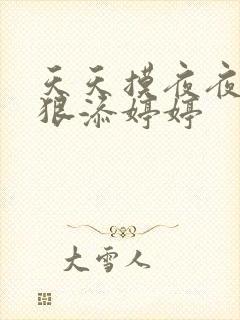 天天摸夜夜
狠添婷婷
大雪人